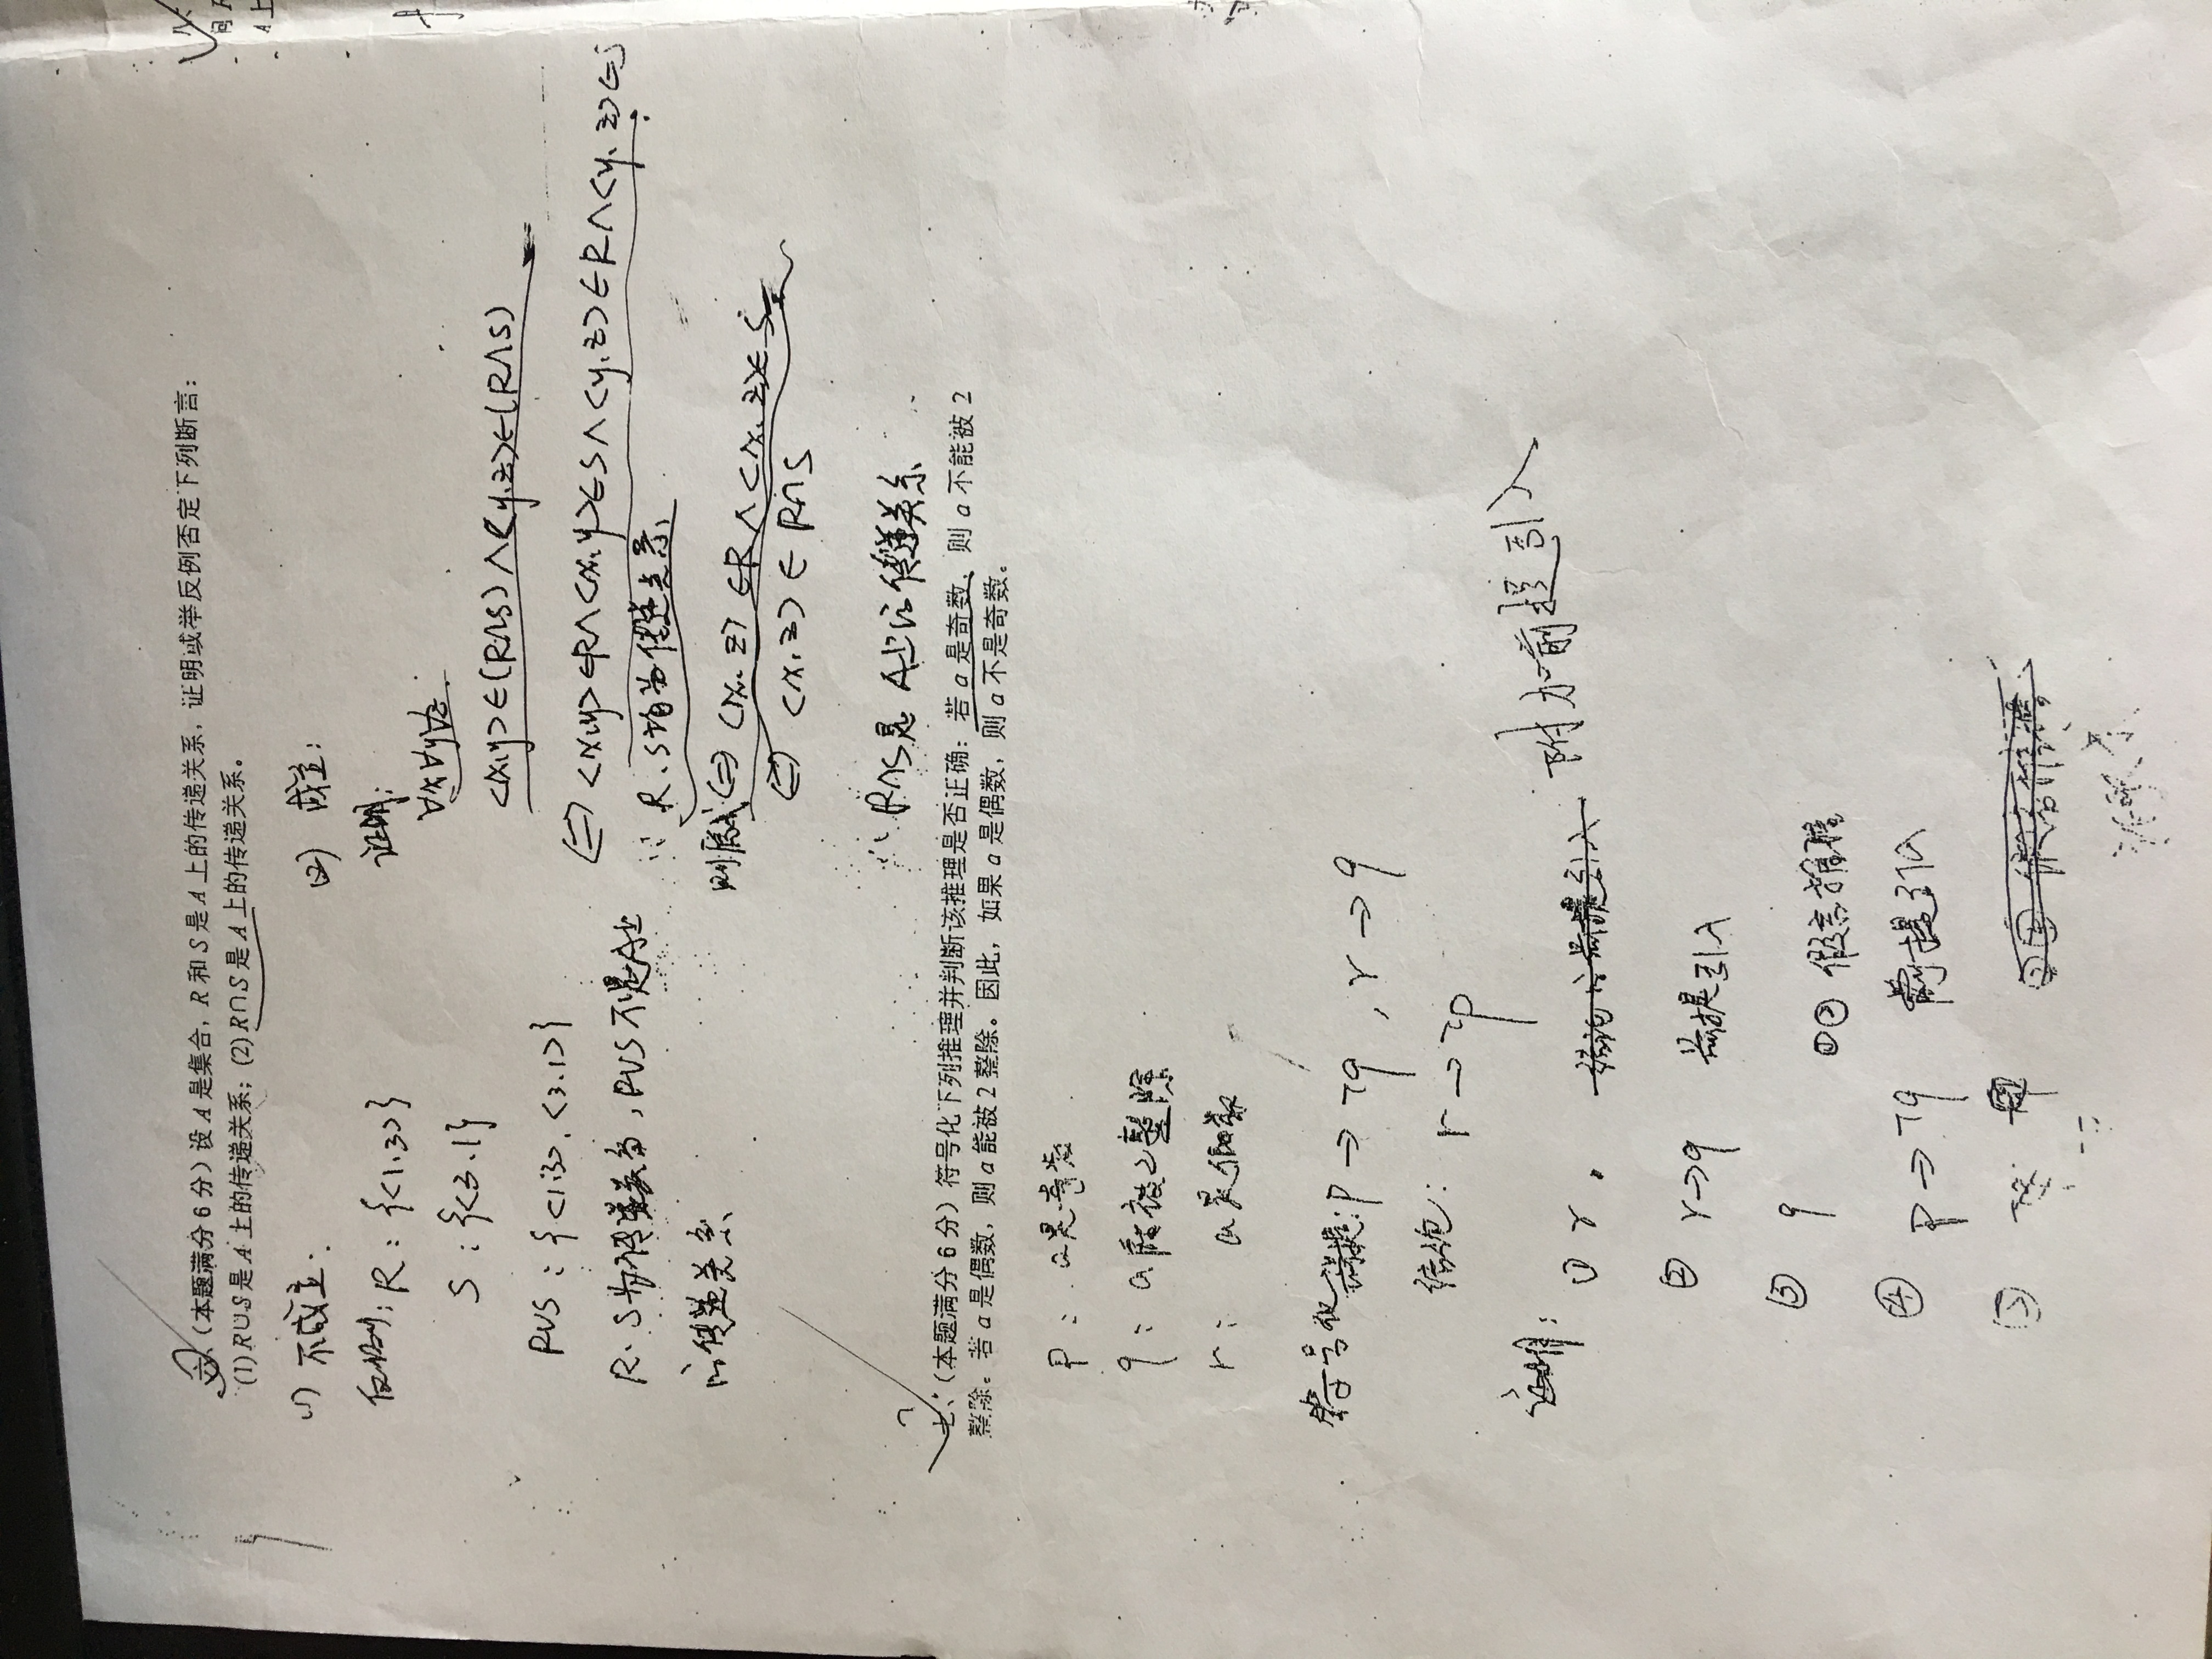 六、(本题满分6分)设A是集合, R和S是A上的传递关系, 证明或举反例否定下列断言:
(1) R∪S是A上的传递关系; (2) R∩S是A上的传递关系。
(1) 不成立:
反例: R: {<1.3>}
S: {<3.1}
R∪S: {<1.3>, <3.1>}
R、S为传递关系, R∪S不是A上
的传递关系
(2) 成立:
证明:
∀x∀y∀z
<x,y>∈(R∩S)∧<y,z>∈(R∩S)
⇔ <x,y>∈R∧<x,y>∈S∧<y,z>∈R∧<y,z>∈S
∵ R、S均为传递关系
则原式⇔ <x,z>∈R∧<x,z>∈S
⇔ <x,z>∈R∩S
∴ R∩S是A上的传递关系
七、(本题满分6分)符号化下列推理并判断该推理是否正确: 若a是奇数, 则a不能被2
整除。若a是偶数, 则a能被2整除。因此, 如果a是偶数, 则a不是奇数。
p: a是奇数
q: a能被2整除
r: a是偶数
符号化 前提: p→¬q, r→q
结论: r→¬p
证明:
① r. 附加前提引入
② r→q 前提引入
③ q ①② 假言推理
④ p→¬q 前提引入
八、
问R
A上